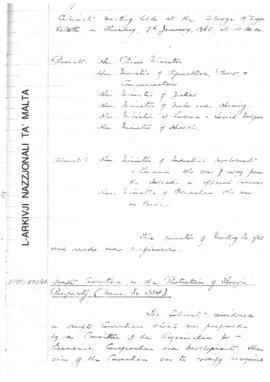 Cabinet Meeting held at the Auberge d'Aragon
Valletta on Thursday, 7th January, 1965, at 10.00 a.m.
Present: Hon. Prime Minister
Hon. Minister of Agriculture, Power &
Communications
Hon. Minister of Justice
Hon. Minister of Works and Housing
Hon. Minister of Labour & Social Welfare
Hon. Minister of Health
Absent: Hon. Minister of Industrial Development
& Tourism who was away from
the Island on official
Hon. Minister of Education who was
The minutes of Meeting No.
were read and confirmed.
Draft Convention on the Protection of Foreign
Property (Memo. No.
The Cabinet considered
a draft Convention which was prepared
by a Committee of the Organisation for
Economic Cooperation and Development. The
aim of the Convention was to codify recognised
L-ARKIVJI NAZZJONALI TA' MALTA